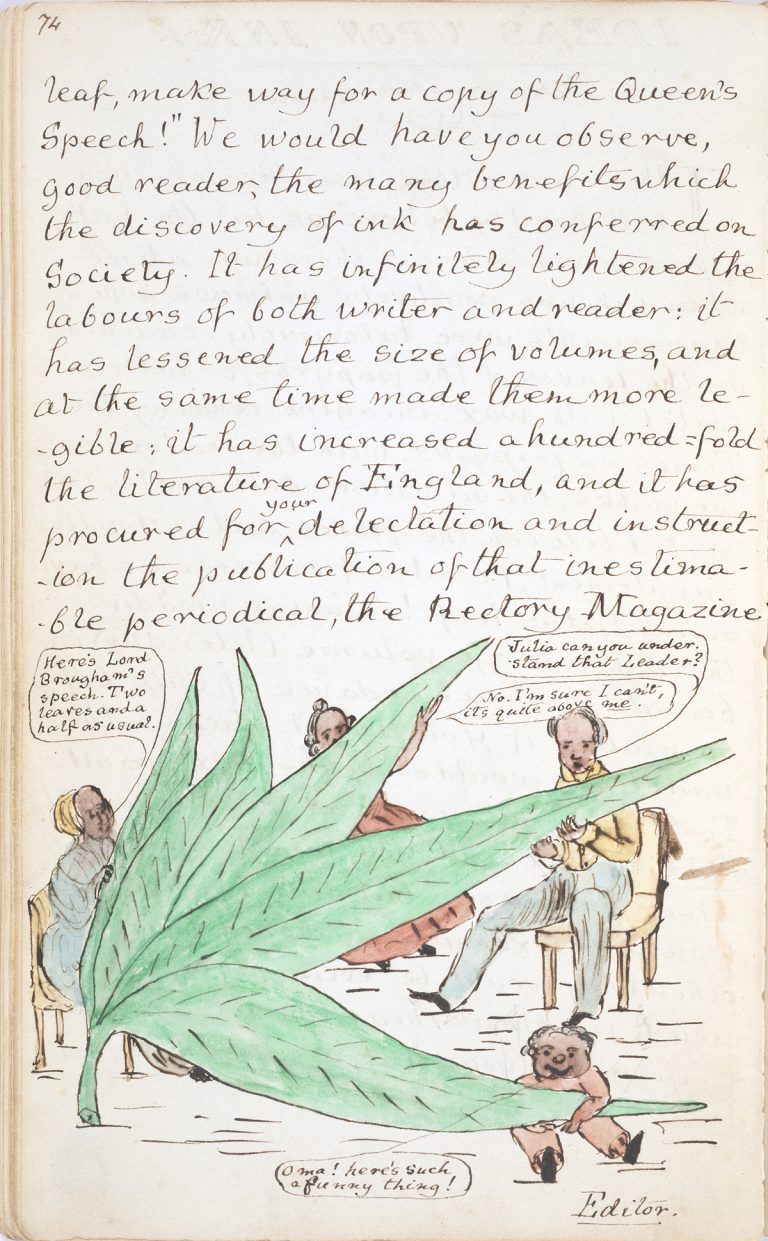 74
leaf, make way for a copy of the Queen's
Speech!" We would have you observe,
good reader, the many benefits which
the discovery of ink has conferred on
Society. It has infinitely lightened the
labours of both writer and reader: it
has lessened the size of volumes, and
at the same time made them more le-
-gible: it has increased a hundred=fold
the literature of England, and it has
your
procured for ^ delectation and instruct-
-ion the publication of that inestima-
-ble periodical, the Rectory Magazine
Here's Lord
Brougham's
speech. Two
leaves and a
half as usual.
Julia can you under.
stand that Leader?
No. I'm sure I can't,
its quite above me.
O ma! here's such
a funny thing!
Editor.